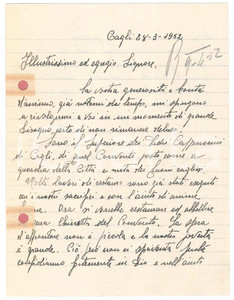 Cagli 28-3-1952
Illustrissimo ed egregio Signore,
La vostra generosità e bontà
d'animo, già notami da tempo, mi spingono
a rivolgermi a voi in un momento di grande
bisogno, certo di non rimanere deluso.
Sono il Superiore dei Padri Cappuccini
di Cagli, di quel Convento posto come a
guardia della Città e meta dei buoni cagliesi
Molti lavori di restauro sono già stati eseguiti
coi nostri sacrifici e con l'aiuto di anime
buone. Ora si vorrebbe restaurare ed abbellire
la Chiesetta del Convento. La spesa
d'affrontare non è piccola e la nostra povertà
è grande. Ciò però non ci spaventa perché
confidiamo fortemente in Dio e nell'aiuto